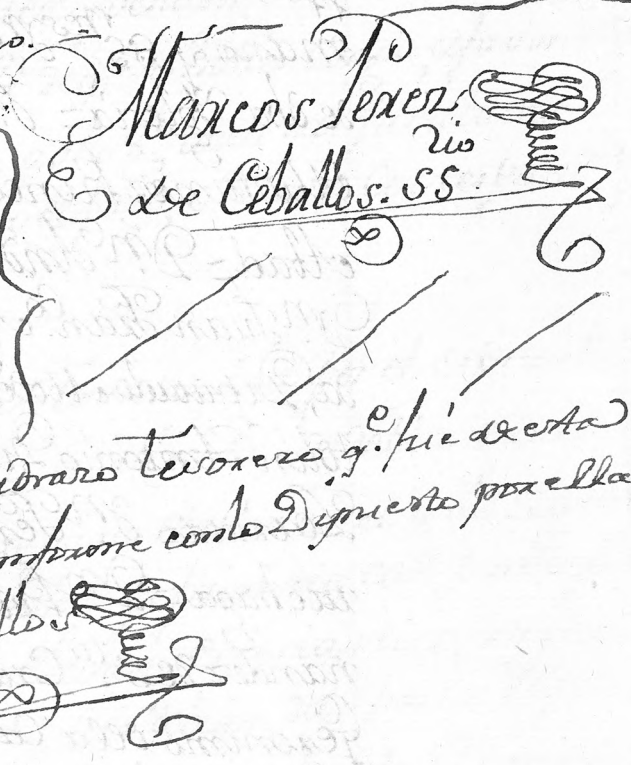 Marcos Perez
rio
de Ceballos. SS.
Tesorero q.e fué de esta
conlo Dipuesto por ella
llos